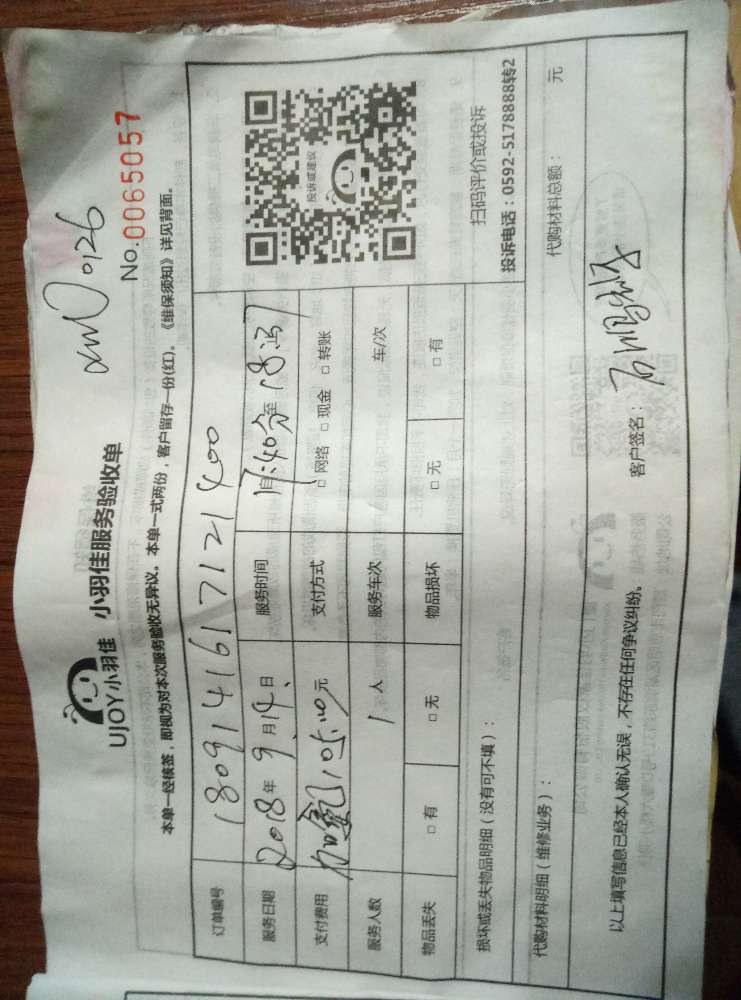 xmD0126
No.0065057
UJOY小羽佳 小羽佳服务验收单
本单一经核签，即视为对本次服务验收无异议。本单一式两份，客户留存一份(红)。《维保须知》详见背面。
订单编号 1809141617121400
服务日期 2018年9月14日 服务时间 自17:40分至18:
支付费用 105.00元 支付方式 □网络 □现金 □转账
服务人数 1人 服务车次 车/次
物品丢失 □有 □无 物品损坏 □无 □有
投诉或建议
扫码评价或投诉
投诉电话：0592-5178888转2
损坏或丢失物品明细（没有可不填）：
代购材料明细（维修业务）： 代购材料总额： 元
以上填写信息已经本人确认无误，不存在任何争议纠纷。 客户签名：